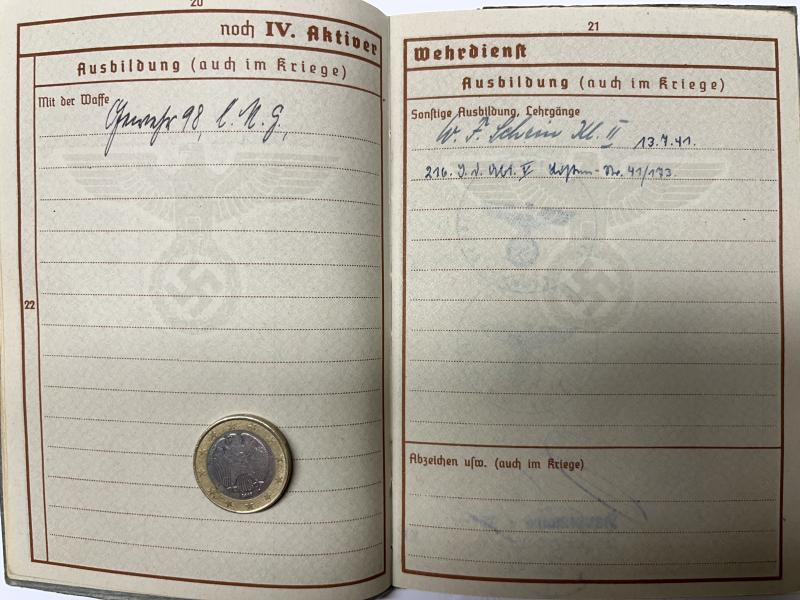 20
noch IV. Aktiver
Ausbildung (auch im Kriege)
Mit der Waffe
Gewehr 98, l. M. G.,
22
21
Wehrdienst
Ausbildung (auch im Kriege)
Sonstige Ausbildung, Lehrgänge
W. F. Schein Kl. II 13.7.41.
216. I. d. V Listen-Nr. 41/173.
Abzeichen usw. (auch im Kriege)